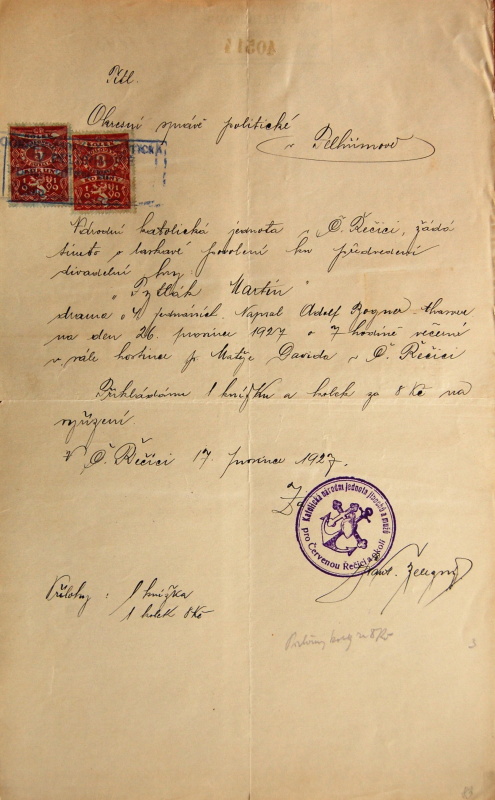 Titl.
Okresní správě politické
v Pelhřimově
5
8
Národní katolická jednota v Č. Řečici, žádá
tímto o laskavé povolení ku předvedení
divadelní hry
"Pytlák Martin"
drama o 4 jednáních. Napsal Adolf Bogner
na den 26. prosince 1927 o 7 hodině večerní
v sále hostince p. Matěje Davida v Č. Řečici
Přikládáme 1 knížku a kolek za 8 Kč na
vyřízení
V Č. Řečici 17. prosince 1927.
Za
Katolická národní jednota jinochů a mužů
pro Červenou Řečici a okolí
Železný
Přílohy: 1 knížka
1 kolek 8 Kč
3